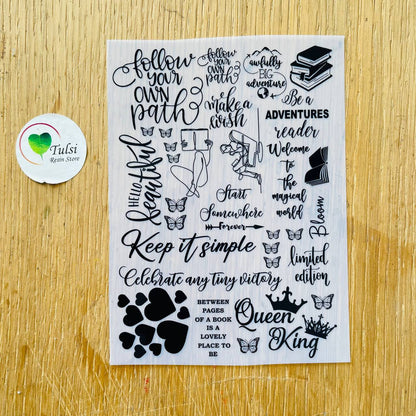 follow
YOUR
OWN
path
follow
YOUR
OWN
path
awfully
BIG
adventure
make a
wish
Be a
ADVENTURES
reader
Welcome
to
the
magical
world
HELLO
beautiful
Tulsi
Resin Store
Start
Somewhere
Forever
Bloom
Keep it simple
limited
edition
Celebrate any tiny victory
BETWEEN
PAGES
OF A BOOK
IS A
LOVELY
PLACE TO
BE
Queen
King